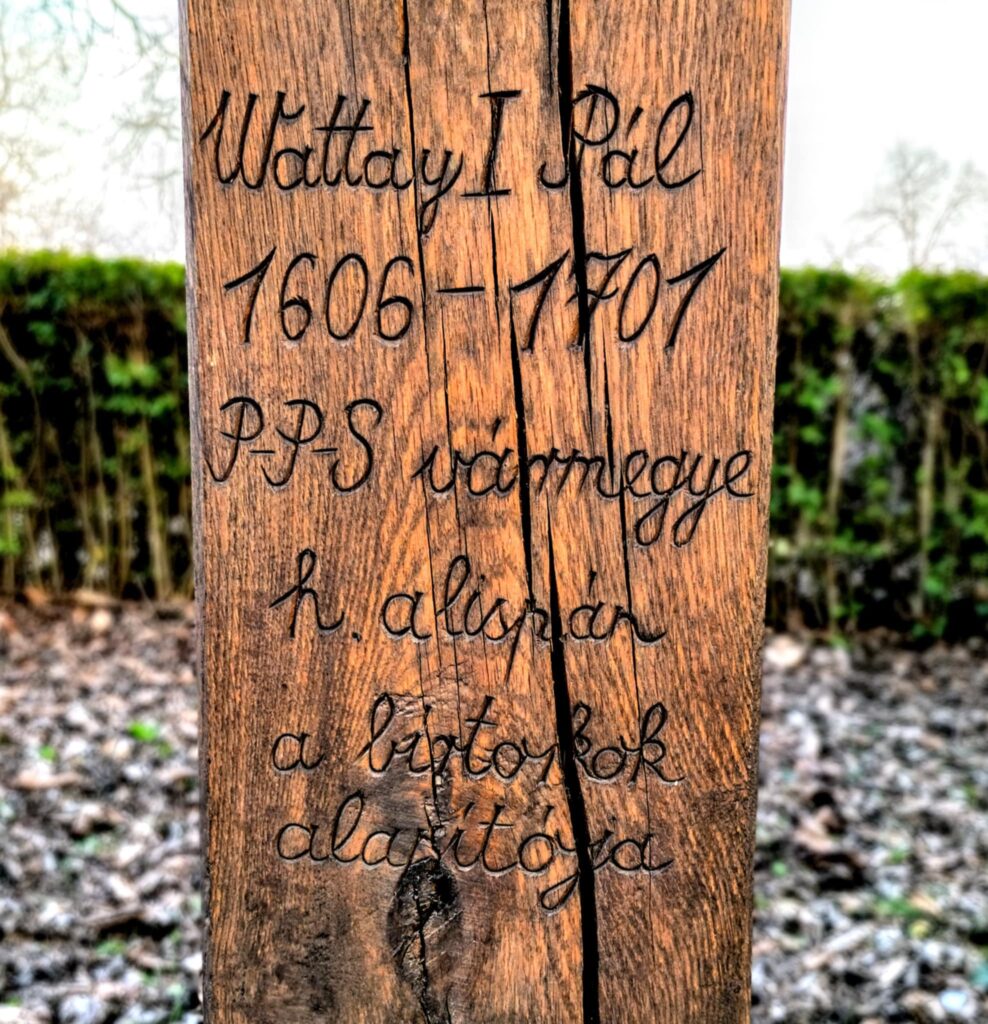 Wattay I Pál
1606-1701
P-P-S vármegye
h. alispán
a birtokok
alapítója